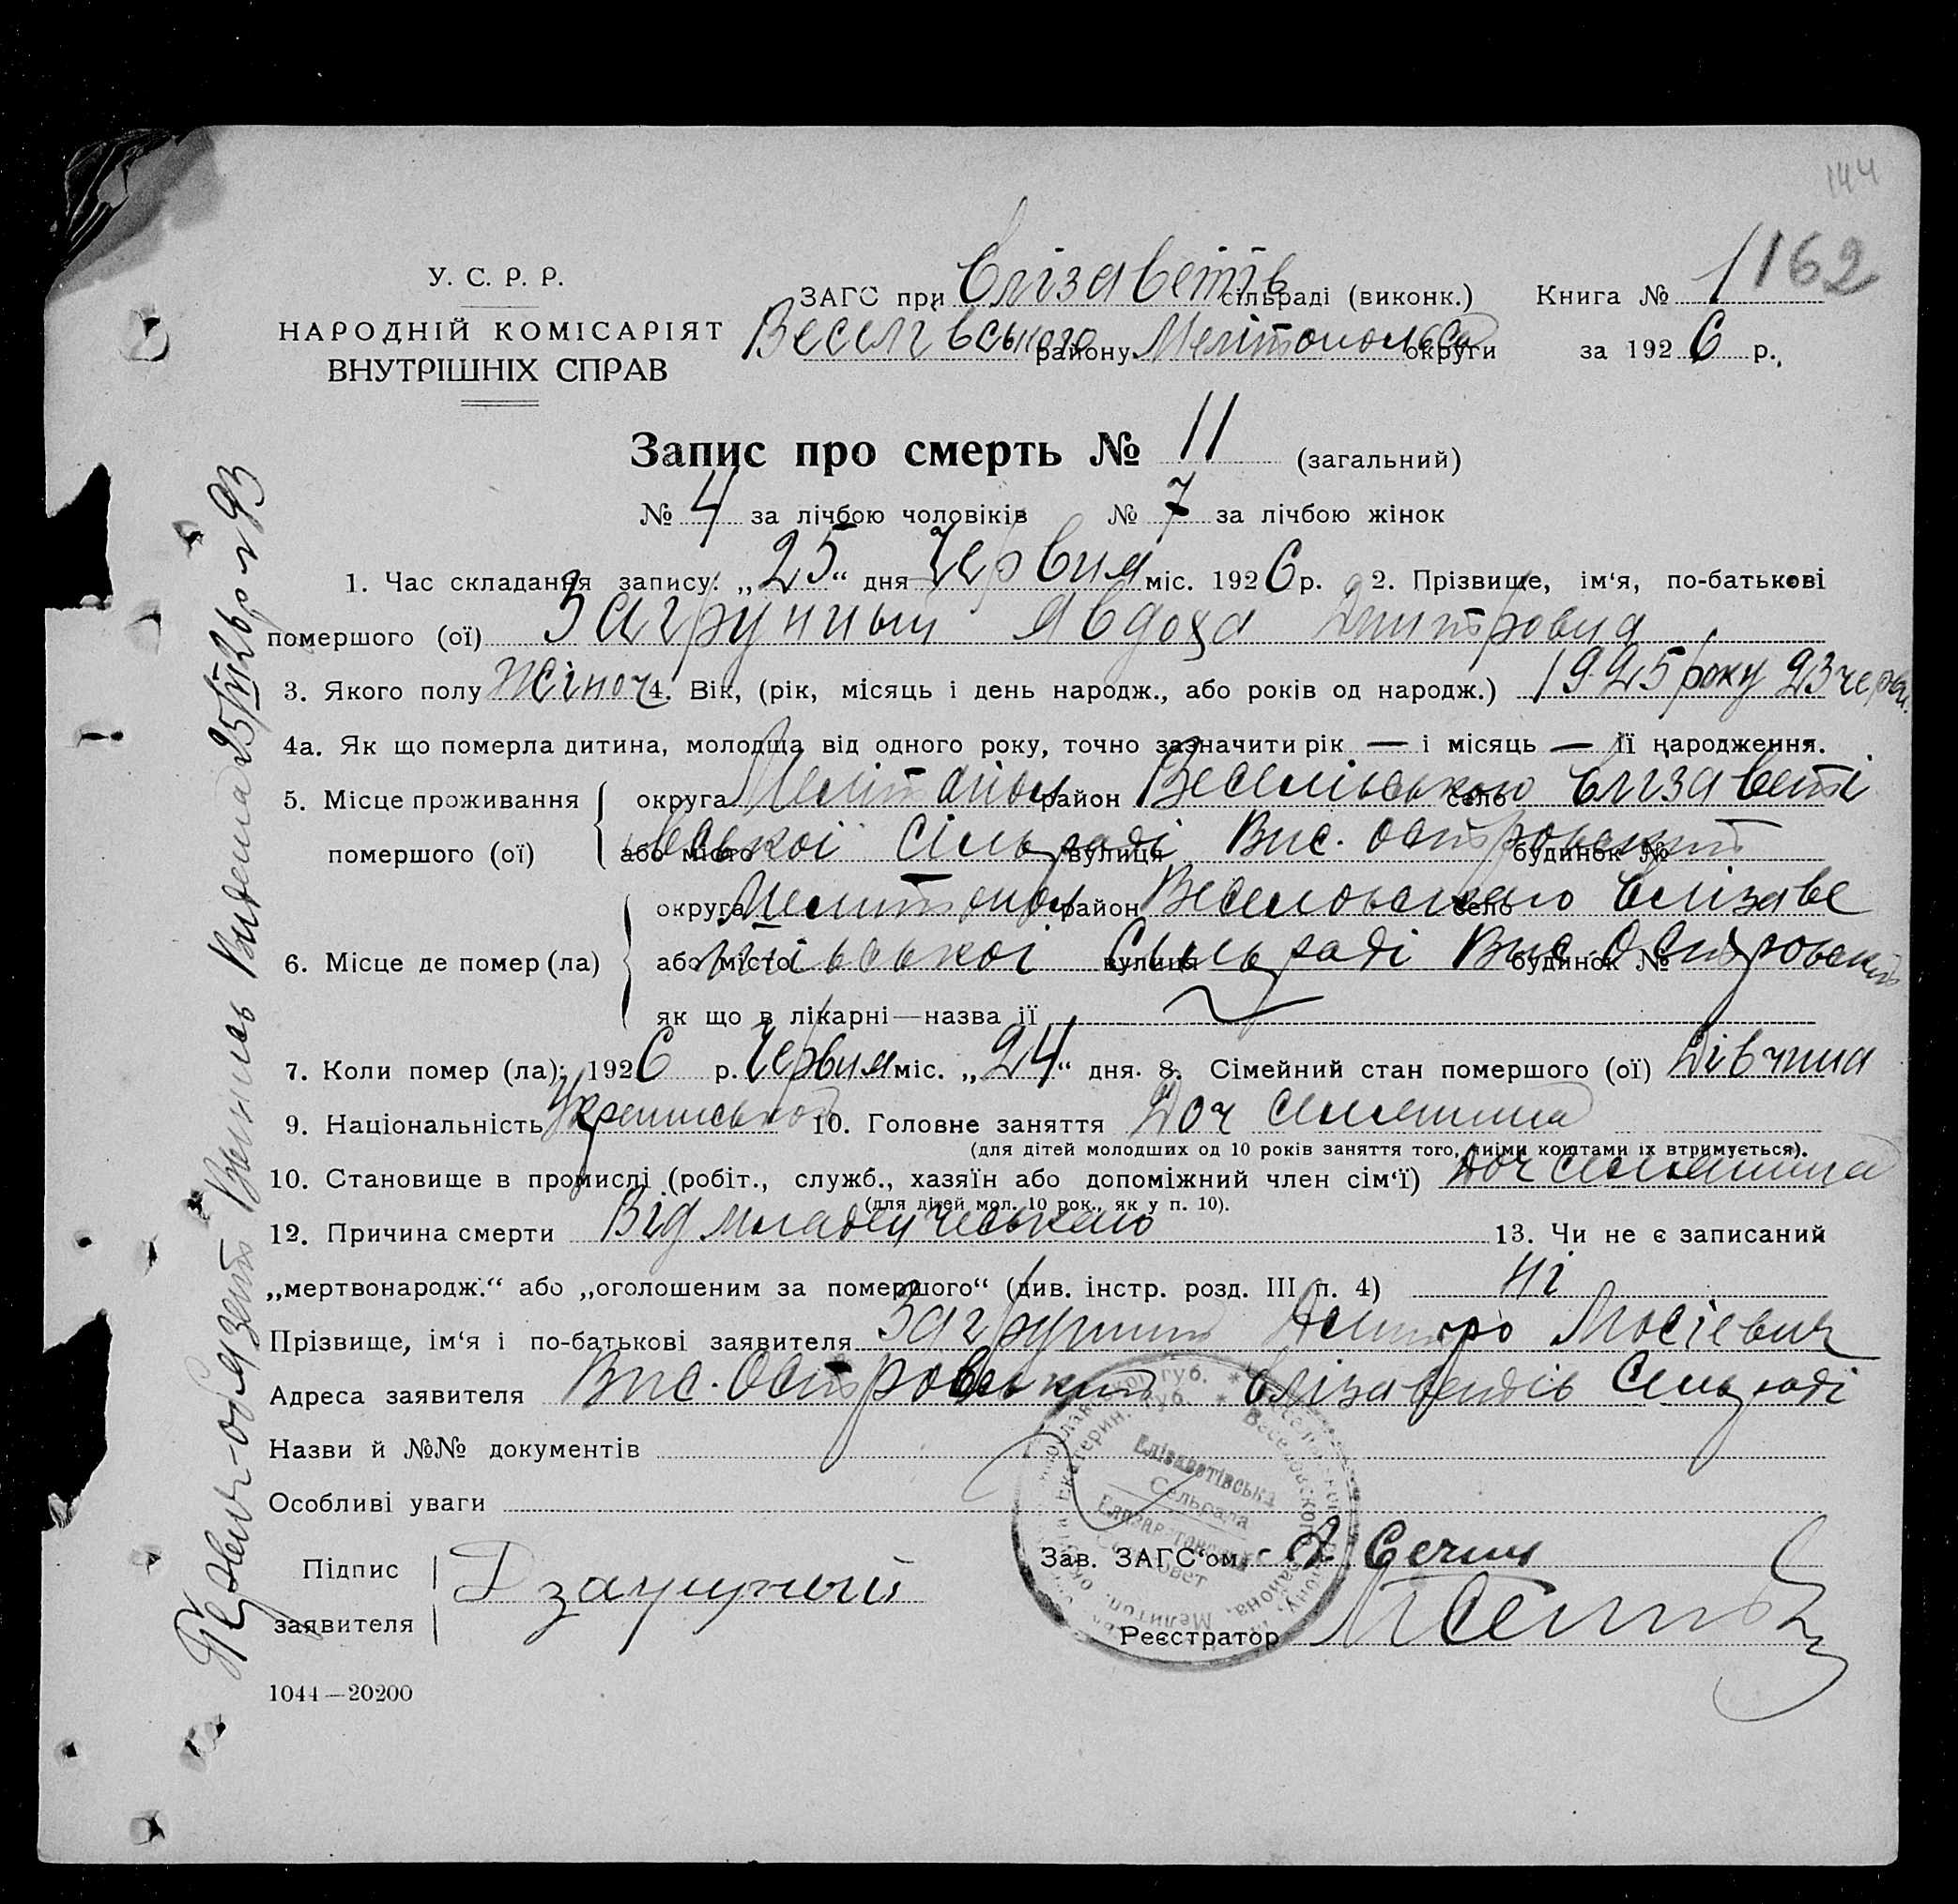 144
У. С. Р. Р.
НАРОДНІЙ КОМІСАРІЯТ
ВНУТРІШНІХ СПРАВ
ЗАГС при Єлізаветів сільраді (виконк.) Книга № 1 162
Веселівського району Мелітопольсь округи за 1926 р.
Запис про смерть № 11 (загальний)
№ 4 за лічбою чоловіків № 7 за лічбою жінок
1. Час складання запису: „25“ дня Червня міс. 1926 р. 2. Прізвище, ім‘я, по-батькові
помершого (ої) Загрунный Явдоха Дмитровна
3. Якого полу жіноч 4. Вік, (рік, місяць і день народж., або років од народж.) 1925 року 23 черв.
4а. Як що померла дитина, молодща від одного року, точно зазначити рік — і місяць — її народження.
5. Місце проживання помершого (ої) округа Мелітопол район Веселівського село Єлізаветі
або місто вської Сільраді вулиця Вис. Островський будинок №
6. Місце де помер (ла) округа Мелитопол район Веселовського село Єлізаве
або місто тівської вулиця Сільраді Вис. Островський будинок №
як що в лікарні—назва її
7. Коли помер (ла): 1926 р. Червня міс. „24“ дня. 8. Сімейний стан помершого (ої) Дівчина
9. Національність 10. Головне заняття Доч селянина
(для дітей молодших од 10 років заняття того, чиїми коштами їх втримується).
10. Становище в промислі (робіт., служб., хазяїн або допоміжний член сім‘ї) Доч селянина
(для дітей мол. 10 рок., як у п. 10).
12. Причина смерти Від младенчеського 13. Чи не є записаний
„мертвонародж.“ або „оголошеним за помершого“ (див. інстр. розд. III п. 4) Ні
Прізвище, ім‘я і по-батькові заявителя Загруний Дмитро Мосієвич
Адреса заявителя Вис. Островський Єлізаветів Сільраді
Назви й №№ документів
Особливі уваги
Підпис заявителя Д
Єлізаветівська
Сельрада
Зав. ЗАГС‘ом
Реєстратор
1044—20200
Видена 25/VI 26 р № 93